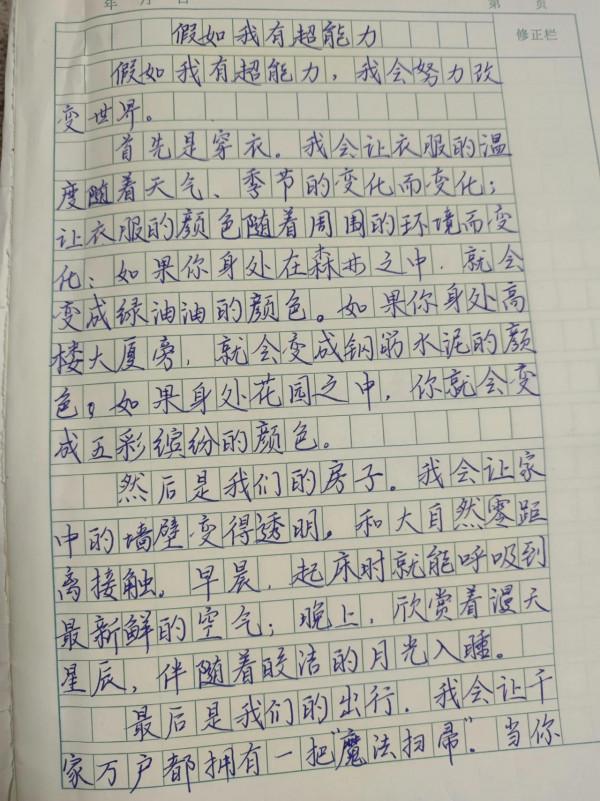 年 月 日 第 页
修正栏
假如我有超能力
假如我有超能力，我会努力改
变世界。
首先是穿衣。我会让衣服的温
度随着天气、季节的变化而变化；
让衣服的颜色随着周围的环境而变
化：如果你身处在森林之中，就会
变成绿油油的颜色。如果你身处高
楼大厦旁，就会变成钢筋水泥的颜
色；如果身处花园之中，你就会变
成五彩缤纷的颜色。
然后是我们的房子。我会让家
中的墙壁变得透明。和大自然零距
离接触。早晨，起床时就能呼吸到
最新鲜的空气；晚上，欣赏着漫天
星辰，伴随着皎洁的月光入睡。
最后是我们的出行．我会让千
家万户都拥有一把"魔法扫帚"．当你